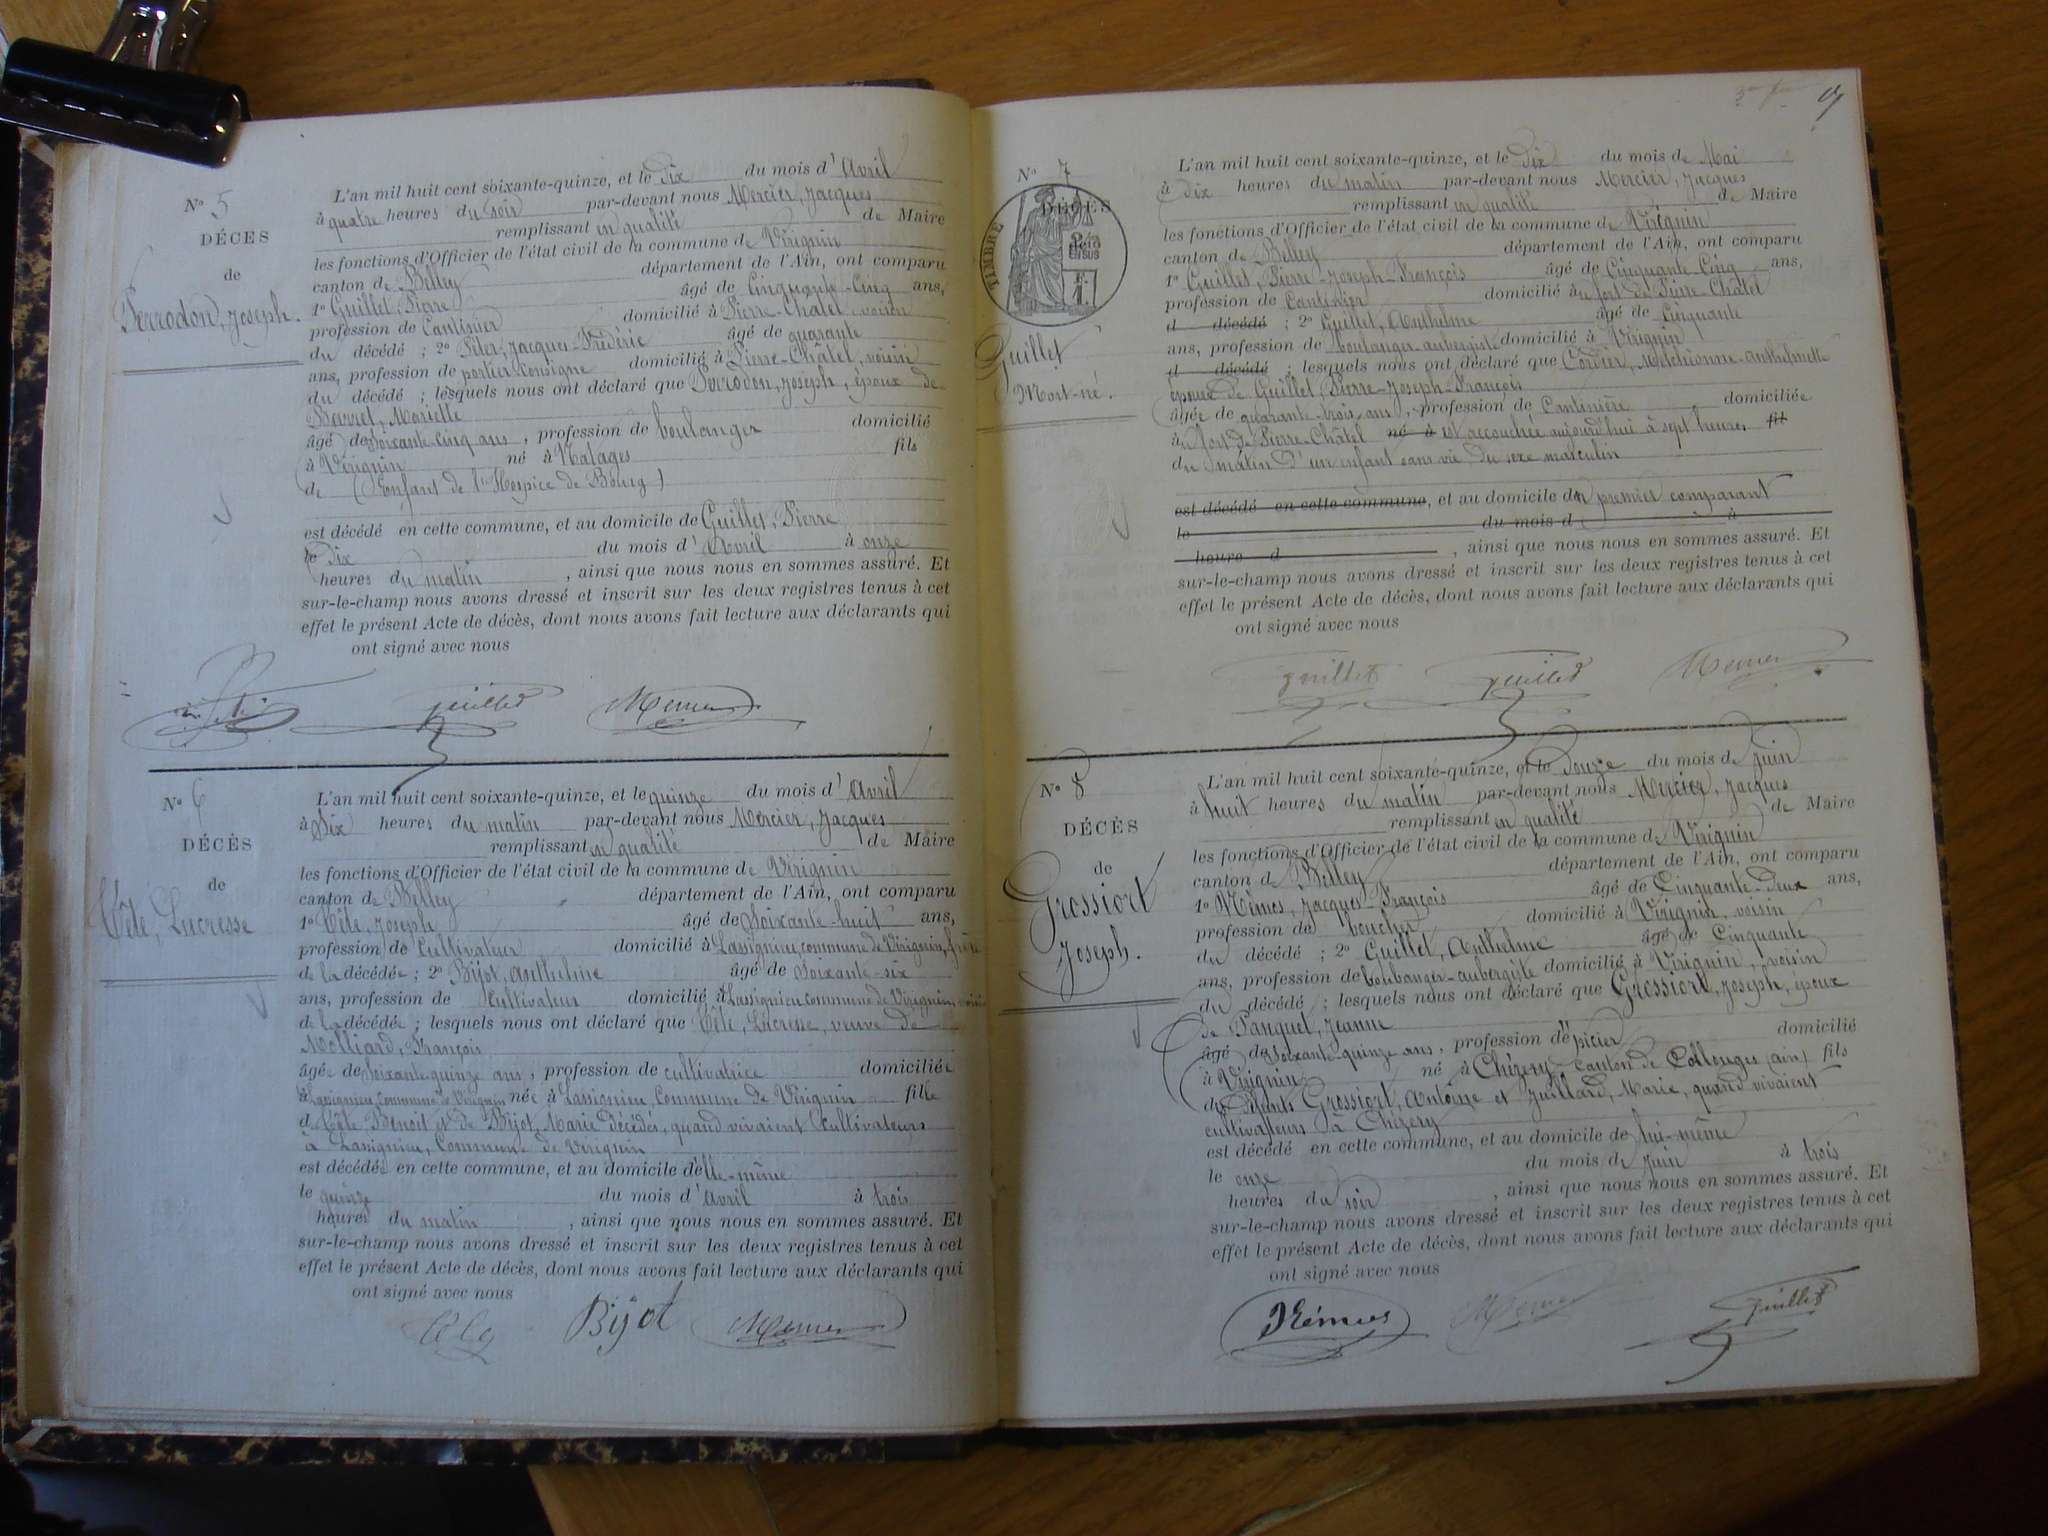 N° 5
DÉCES
de
Perrodon, Joseph.
L'an mil huit cent soixante-quinze, et le Dix du mois d'Avril
à quatre heures du soir par-devant nous Mercier, Jacques
remplissant en qualité de Maire
les fonctions d'Officier de l'état civil de la commune de Virignin
canton de Belley département de l'Ain, ont comparu
1° Guillet, Pierre âgé de Cinquante-Cinq ans,
profession de Cantinier domicilié à Pierre-Châtel, voisin
du décédé ; 2° Peter, Jacques-Frédéric âgé de quarante
ans, profession de portier-consigne domicilié à Pierre-Châtel, voisin
du décédé ; lesquels nous ont déclaré que Perrodon, Joseph, époux de
Barret, Mariette
âgé de Soixante-cinq ans, profession de boulanger domicilié
à Virignin né à Natages fils
de (Enfant de l'Hospice de Bourg)
est décédé en cette commune, et au domicile de Guillet, Pierre
le Dix du mois d'Avril à onze
heures du matin, ainsi que nous nous en sommes assuré. Et
sur-le-champ nous avons dressé et inscrit sur les deux registres tenus à cet
effet le présent Acte de décès, dont nous avons fait lecture aux déclarants qui
ont signé avec nous
guillet Mercier
N° 6
DÉCÈS
de
Tête, Lucresse
L'an mil huit cent soixante-quinze, et le quinze du mois d'Avril
à Six heures du matin par-devant nous Mercier, Jacques
remplissant en qualité de Maire
les fonctions d'Officier de l'état civil de la commune de Virignin
canton de Belley département de l'Ain, ont comparu
1° Tête, Joseph âgé de Soixante-huit ans,
profession de Cultivateur domicilié à Lassignieu, commune de Virignin, frère
de la décédée ; 2° Bijot, Anthelme âgé de Soixante-six
ans, profession de Cultivateur domicilié à Lassignieu commune de Virignin, voisin
de la décédée ; lesquels nous ont déclaré que Tête, Lucresse, veuve de
Molliard, François
âgée de Soixante-quinze ans, profession de cultivatrice domiciliée
à Lassignieu, Commune de Virignin née à Lassignieu, Commune de Virignin fille
de Tête Benoit et de Bijot, Marie décédés, quand vivaient Cultivateurs
à Lassignieu, Commune de Virignin
est décédée en cette commune, et au domicile d'elle-même
le quinze du mois d'Avril à trois
heures du matin, ainsi que nous nous en sommes assuré. Et
sur-le-champ nous avons dressé et inscrit sur les deux registres tenus à cet
effet le présent Acte de décès, dont nous avons fait lecture aux déclarants qui
ont signé avec nous
Bijot Mercier
N° 7
DÉCÈS
TIMBRE
Guillet
Mort-né.
L'an mil huit cent soixante-quinze, et le Dix du mois de Mai
à dix heures du matin par-devant nous Mercier, Jacques
remplissant en qualité de Maire
les fonctions d'Officier de l'état civil de la commune de Virignin
canton de Belley département de l'Ain, ont comparu
1° Guillet, Pierre-Joseph-François âgé de Cinquante-Cinq ans,
profession de Cantinier domicilié au fort de Pierre-Châtel
d décédé ; 2° Guillet, Anthelme âgé de Cinquante
ans, profession de Boulanger-aubergiste domicilié à Virignin
d décédé ; lesquels nous ont déclaré que Cordier, Melchionne-Anthelmette
épouse de Guillet, Pierre-Joseph-François
âgée de quarante-trois ans, profession de Cantinière domiciliée
à fort de Pierre-Châtel né à est accouchée aujourd'hui à sept heures fil
du matin d'un enfant sans vie du sexe masculin
est décédé en cette commune, et au domicile du premier comparant
le du mois d à
heure d , ainsi que nous nous en sommes assuré. Et
sur-le-champ nous avons dressé et inscrit sur les deux registres tenus à cet
effet le présent Acte de décès, dont nous avons fait lecture aux déclarants qui
ont signé avec nous
guillet guillet Mercier
N° 8
DÉCÈS
de
Grossiort
Joseph.
L'an mil huit cent soixante-quinze, et le Douze du mois de Juin
à huit heures du matin par-devant nous Mercier, Jacques
remplissant en qualité de Maire
les fonctions d'Officier de l'état civil de la commune de Virignin
canton de Belley département de l'Ain, ont comparu
1° Mêmes, Jacques-François âgé de Cinquante-deux ans,
profession de boucher domicilié à Virignin, voisin
du décédé ; 2° Guillet, Anthelme âgé de Cinquante
ans, profession de boulanger-aubergiste domicilié à Virignin, voisin
du décédé ; lesquels nous ont déclaré que Grossiort, Joseph, époux
de Panquet, Jeanne
âgé de Soixante-quinze ans, profession d'épicier domicilié
à Virignin né à Chézery-canton de Collonges (ain) fils
de défunts Grossiort, Antoine et Juillard, Marie, quand vivaient
cultivateurs à Chézery
est décédé en cette commune, et au domicile de lui-même
le onze du mois de Juin à trois
heures du soir, ainsi que nous nous en sommes assuré. Et
sur-le-champ nous avons dressé et inscrit sur les deux registres tenus à cet
effet le présent Acte de décès, dont nous avons fait lecture aux déclarants qui
ont signé avec nous
Mémes Mercier guillet